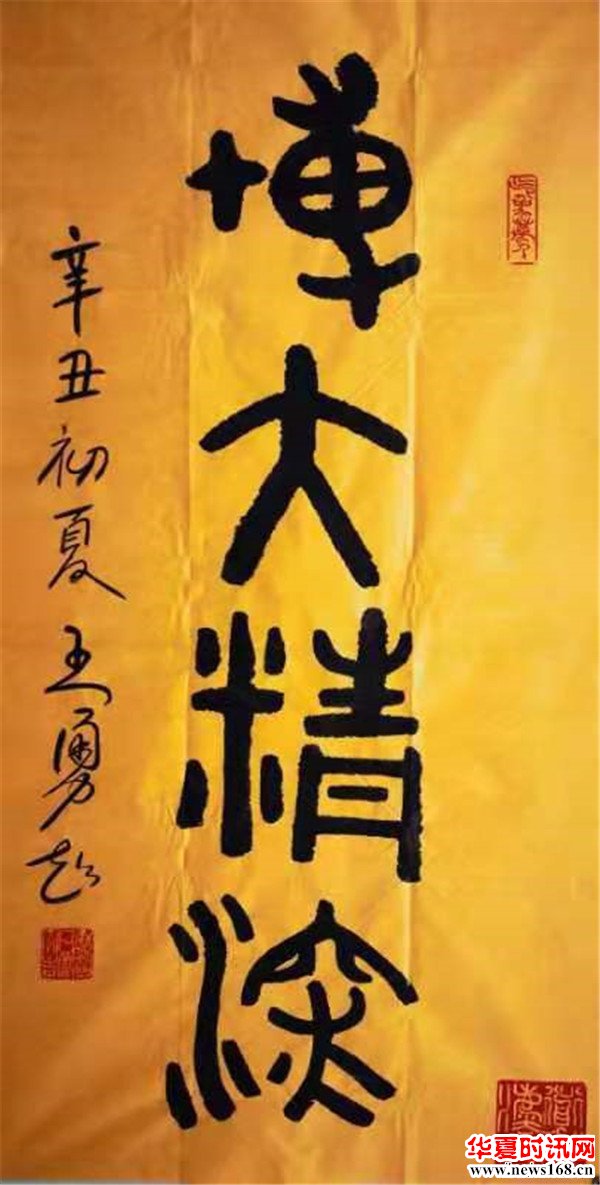 博大精深
辛丑初夏 王勇超
华夏时讯网
www.news168.cn